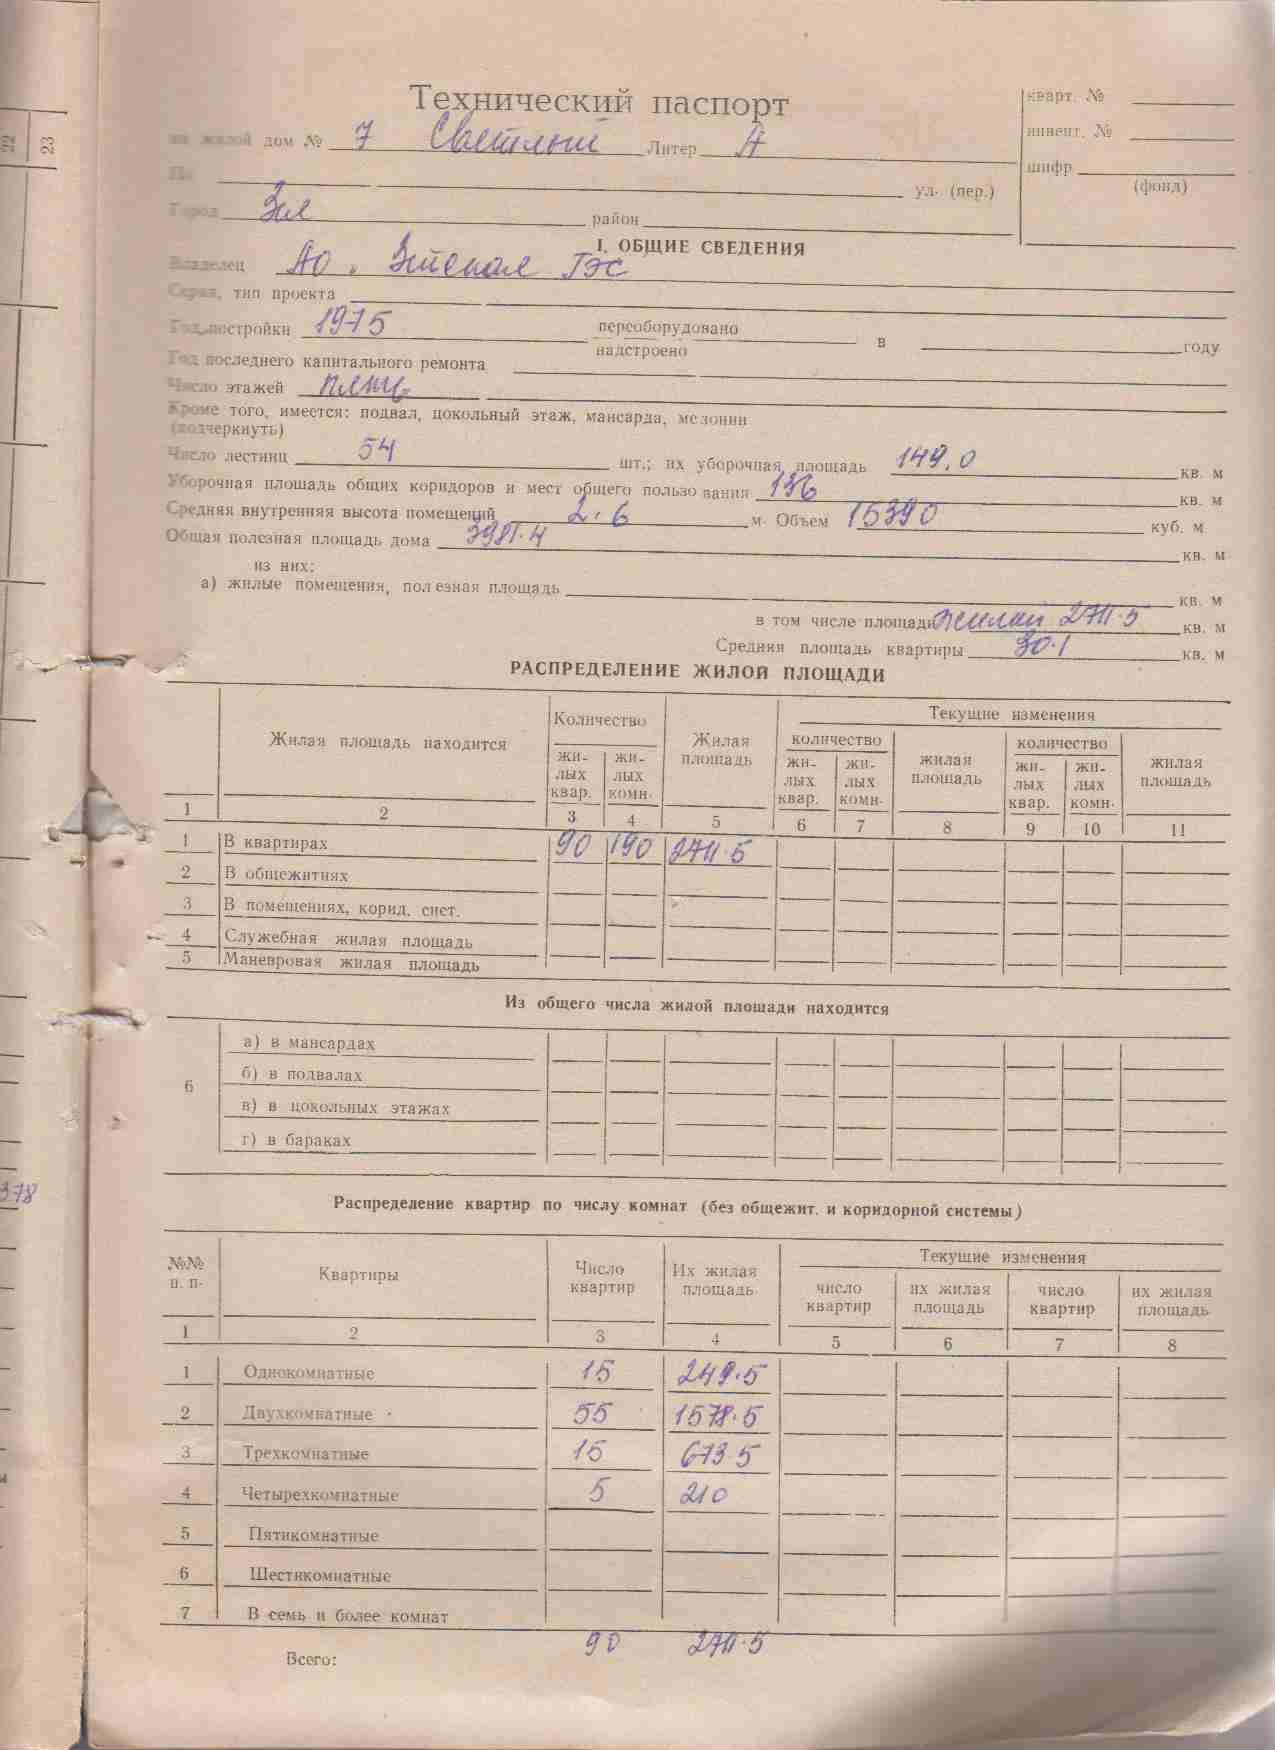 22
23
378
Технический паспорт
кварт. №
на жилой дом № 7 Светлый Литер А
инвент. №
По ул. (пер.)
шифр
(фонд)
Город Зея район
I. ОБЩИЕ СВЕДЕНИЯ
Владелец АО "Зейская ГЭС"
Серия, тип проекта
Год постройки 1975 переоборудовано
надстроено в году
Год последнего капитального ремонта
Число этажей пять
Кроме того, имеется: подвал, цокольный этаж, мансарда, мезонин
(подчеркнуть)
Число лестниц 54 шт.; их уборочная площадь 149.0 кв. м
Уборочная площадь общих коридоров и мест общего пользования 136 кв. м
Средняя внутренняя высота помещений 2.6 м. Объем 15390 куб. м
Общая полезная площадь дома 3981.4 кв. м
из них:
а) жилые помещения, полезная площадь кв. м
в том числе площади жилой 2711.5 кв. м
Средняя площадь квартиры 30.1 кв. м
РАСПРЕДЕЛЕНИЕ ЖИЛОЙ ПЛОЩАДИ
Жилая площадь находится Количество Жилая площадь Текущие изменения
количество жилая площадь количество жилая площадь
жи-лых квар. жи-лых комн. жи-лых квар. жи-лых комн. жи-лых квар. жи-лых комн.
1 2 3 4 5 6 7 8 9 10 11
1 В квартирах 90 190 2711.5
2 В общежитиях
3 В помещениях, корид. сист.
4 Служебная жилая площадь
5 Маневровая жилая площадь
Из общего числа жилой площади находится
6
а) в мансардах
б) в подвалах
в) в цокольных этажах
г) в бараках
Распределение квартир по числу комнат (без общежит. и коридорной системы)
№№ п. п. Квартиры Число квартир Их жилая площадь Текущие изменения
число квартир их жилая площадь число квартир их жилая площадь
1 2 3 4 5 6 7 8
1 Однокомнатные 15 249.5
2 Двухкомнатные 55 1578.5
3 Трехкомнатные 15 673.5
4 Четырехкомнатные 5 210
5 Пятикомнатные
6 Шестикомнатные
7 В семь и более комнат
Всего: 90 2711.5